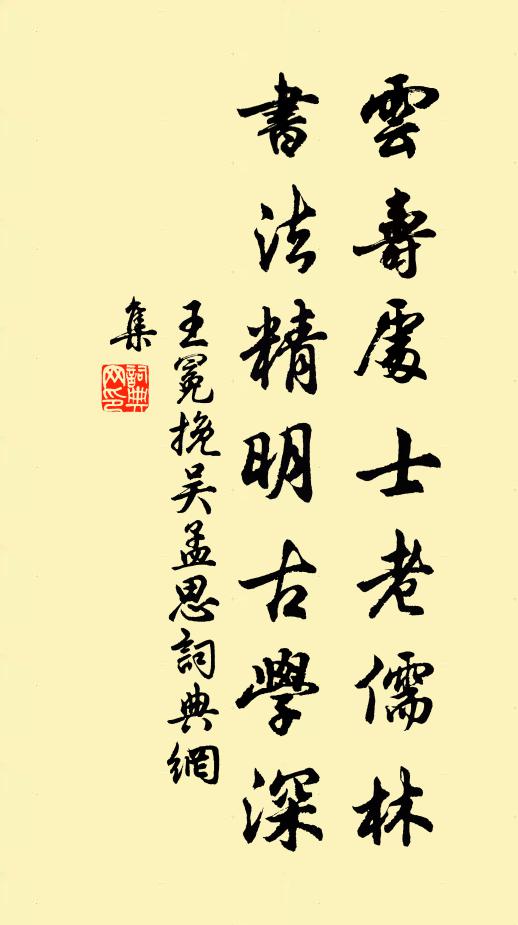 雲壽處士老儒林
書法精明古學深
王冕挽吴孟思詞典網
集
詞典網印